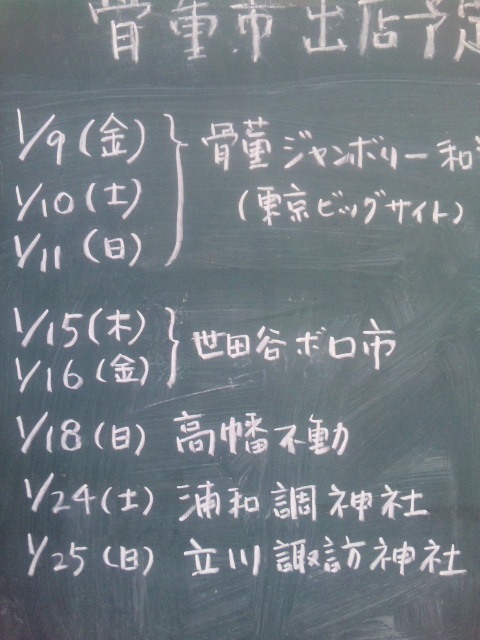 骨董市出店予定
1/9(金) 骨董ジャンボリー和
1/10(土) (東京ビッグサイト)
1/11(日)
1/15(木) 世田谷ボロ市
1/16(金)
1/18(日) 高幡不動
1/24(土) 浦和調神社
1/25(日) 立川諏訪神社